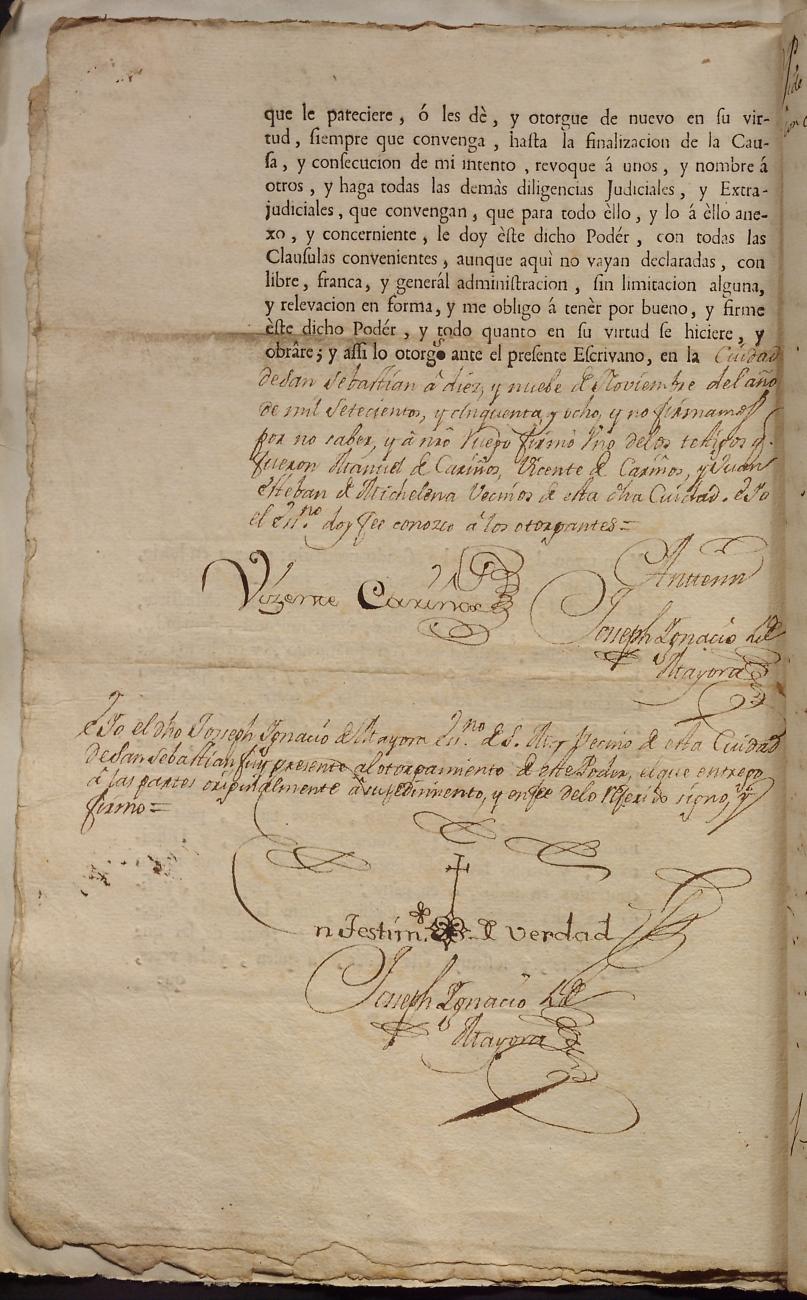 que le pareciere, ó les dè, y otorgue de nuevo en ſu vir-
tud, ſiempre que convenga, haſta la finalizacion de la Cau-
ſa, y conſecucion de mi intento, revoque á unos, y nombre á
otros, y haga todas las demàs diligencias Judiciales, y Extra-
judiciales, que convengan, que para todo èllo, y lo á èllo ane-
xo, y concerniente, le doy èſte dicho Podér, con todas las
Clauſulas convenientes, aunque aquì no vayan declaradas, con
libre, franca, y generál adminiſtracion, ſin limitacion alguna,
y relevacion en forma, y me obligo á tenèr por bueno, y firme
èſte dicho Podér, y todo quanto en ſu virtud ſe hiciere, y
obráre; y aſſi lo otorgo ante el preſente Eſcrivano, en la Ciudad
de San Sebastian à diez, y nuebe de Noviembre del año
de mil Setecientos, y cinquenta, y ocho, y no firmamos
por no saber, y à nro Ruego firmó Vno delos testigos q.
fueron Manuel de Cariños, Vicente de Cariños, y Juan
Esteban de Michelena Vecinos de esta dha Ciudad. E Yo
el Ess.no doy fee conozco à los otorgantes =
Vizente Cariños
Anttemi
Joseph Ignacio de
Mayora
E Yo el dho Joseph Ignacio de Mayora Ess.no de S. Mag. Vecino de esta Ciudad
de San Sebastian fuy presente al otorgamiento de este Poder, el que entrego
à las partes originalmente à su pedimiento, y en fee de lo Referido signo, y
firmo =
En Testim.o de verdad
Joseph Ignacio de
Mayora